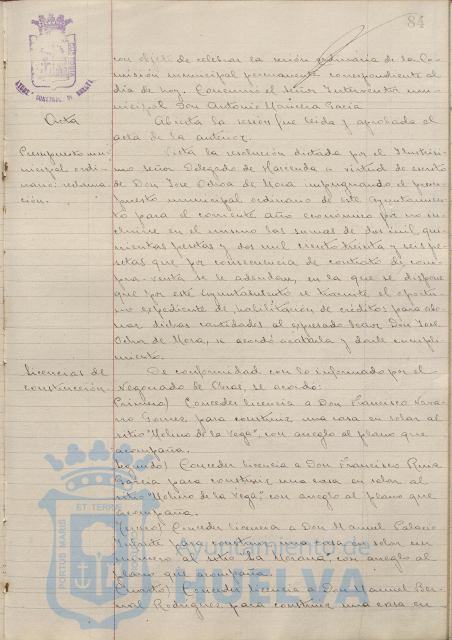 84
con objeto de celebrar la sesión ordinaria de la Co-
misión municipal permanente correspondiente al
día de hoy. Concurrió el Señor Interventor mu-
nicipal Don Antonio Mancera Gacia
Acta
Abierta la sesión fue leida y aprobada el
acta de la anterior.
Presupuesto mu-
nicipal ordi-
nario: reclama-
ción.
Vista la resolución dictada por el Ilustrísi-
mo señor Delegado de Hacienda a virtud de escrito
de Don José Ochoa de Mora impugnando el presu-
puesto municipal ordinario de este Ayuntamien-
to para el corriente año económico por no in-
cluirse en el mismo las sumas de dos mil qui-
nientas pesetas y dos mil ciento treinta y seis pe-
setas que por consecuencia de contrato de com-
pra-venta se le adeudan, en la que se dispone
que por este Ayuntamiento se tramite el oportu-
no expediente de habilitación de créditos para abo-
nar dichas cantidades al expresado señor Don José
Ochoa de Mora, se acordó acatarla y darle cumpli-
miento.
Licencias de
construcción.
De conformidad con lo informado por el
Negociado de Obras, se acordó:
Primero) Conceder licencia a Don Francisco Nava-
rro Gomez para construir una casa en solar al
sitio "Molino de la Vega", con arreglo al plano que
acompaña.
Segundo) Conceder licencia a Don Francisco Ruiz
Garcia para construir una casa en solar al
sitio "Molino de la Vega", con arreglo al plano que
acompaña.
Tercero) Conceder licencia a Don Manuel Palacio
para construir una casa en solar sin
numero al sitio "La Morana", con arreglo al
plano que acompaña.
Cuarto) Conceder licencia a Don Manuel Ber-
nal Rodriguez para construir una casa en
PORTUS MARIS
ET TERRAE
Ayuntamiento de
HUELVA